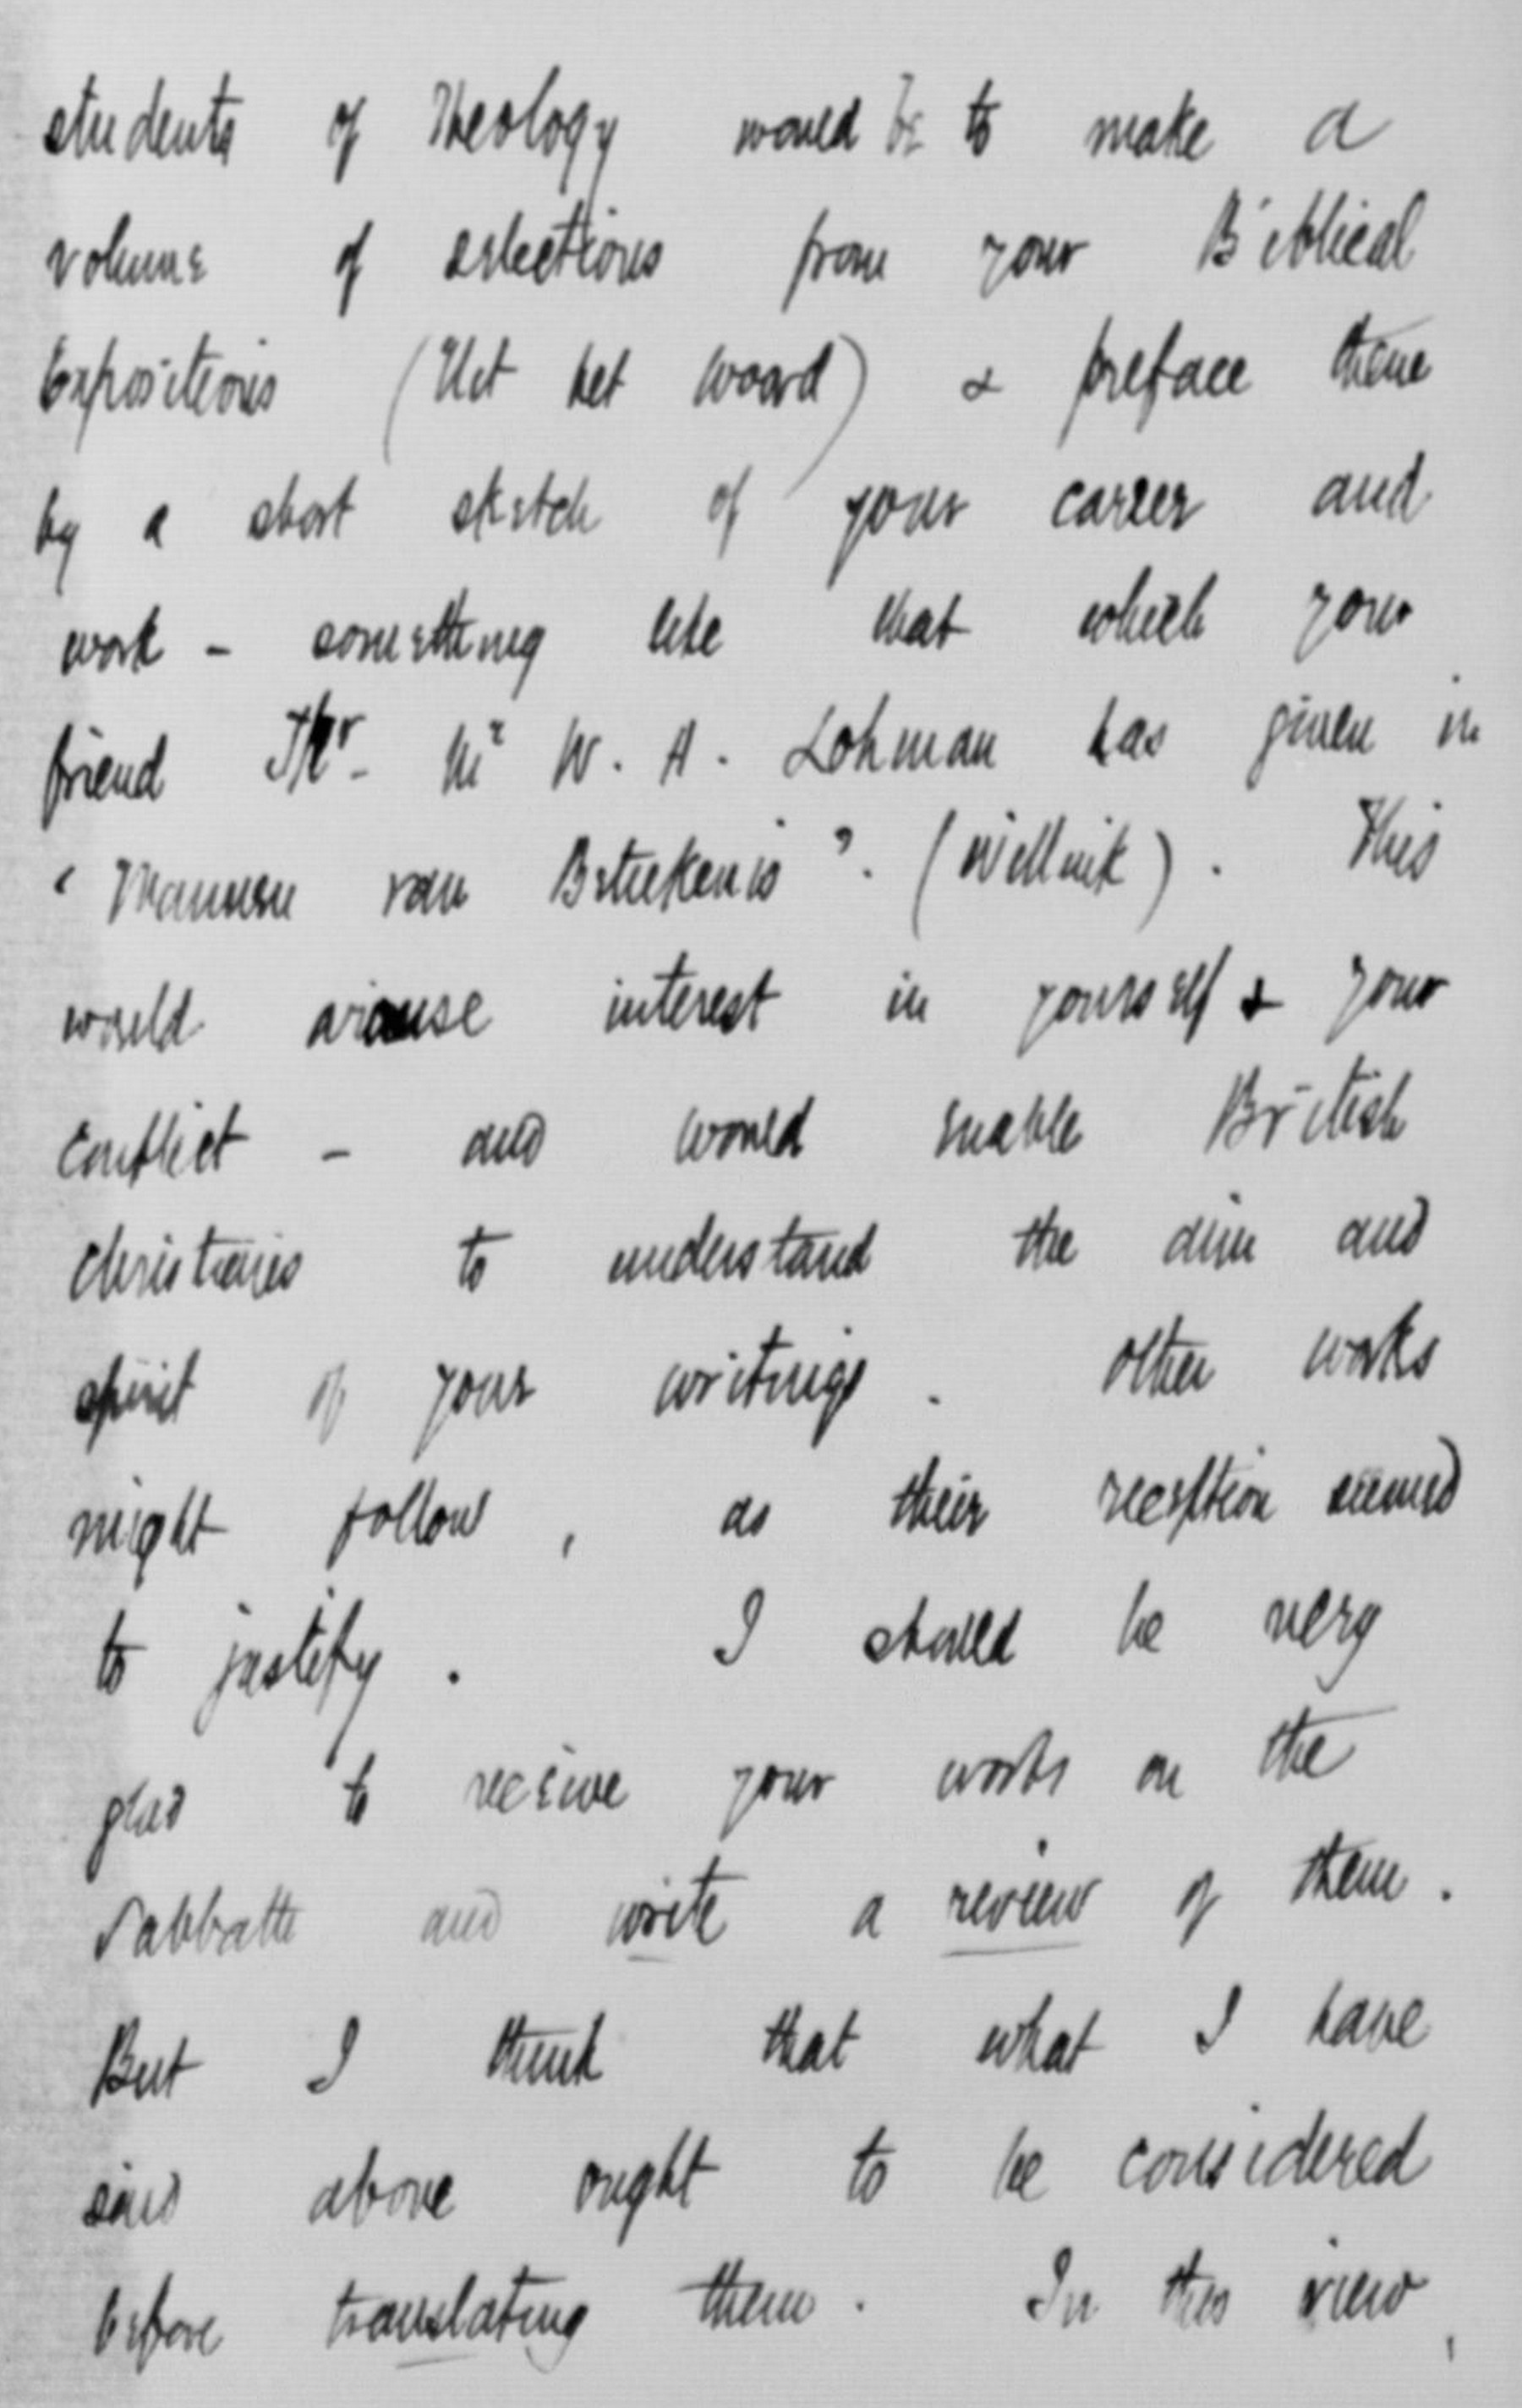 students of Theology would be to make a
volume of selections from your Biblical
Expositions (Uit het Woord) & preface them
by a short sketch of your career and
work - something like that which your
friend Jhr. Mr W. H. Lohman has given in
"Mannen van Beteekenis". (Willink). This
would arouse interest in yourself & your
conflict - and would enable British
Christians to understand the aim and
spirit of your writings. Other works
might follow, as their reception seemed
to justify. I should be very
glad to receive your works on the
Sabbath and write a review of them.
But I think that what I have
said above ought to be considered
before translating them. In this view,